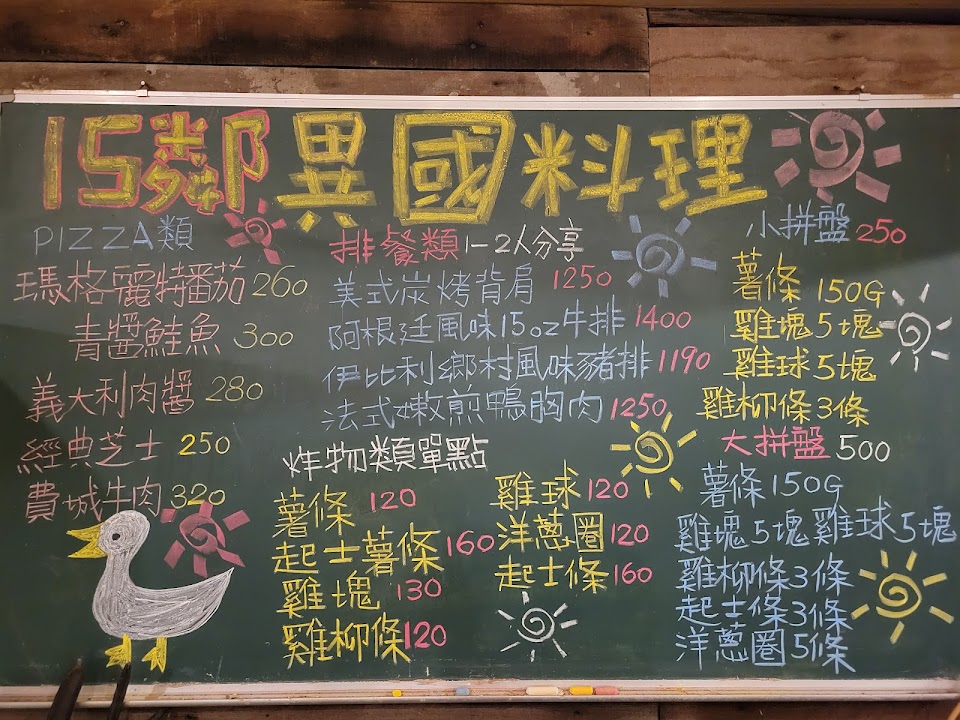 15鄰異國料理
PIZZA類
瑪格麗特番茄260
青醬鮭魚300
義大利肉醬280
經典芝士250
費城牛肉320
排餐類1-2人分享
美式炭烤背肩1250
阿根廷風味15oz牛排1400
伊比利鄉村風味豬排1190
法式嫩煎鴨胸肉1250
炸物類單點
薯條120
起士薯條160
雞塊130
雞柳條120
雞球120
洋蔥圈120
起士條160
小拼盤250
薯條150G
雞塊5塊
雞球5塊
雞柳條3條
大拼盤500
薯條150G
雞塊5塊雞球5塊
雞柳條3條
起士條3條
洋蔥圈5條